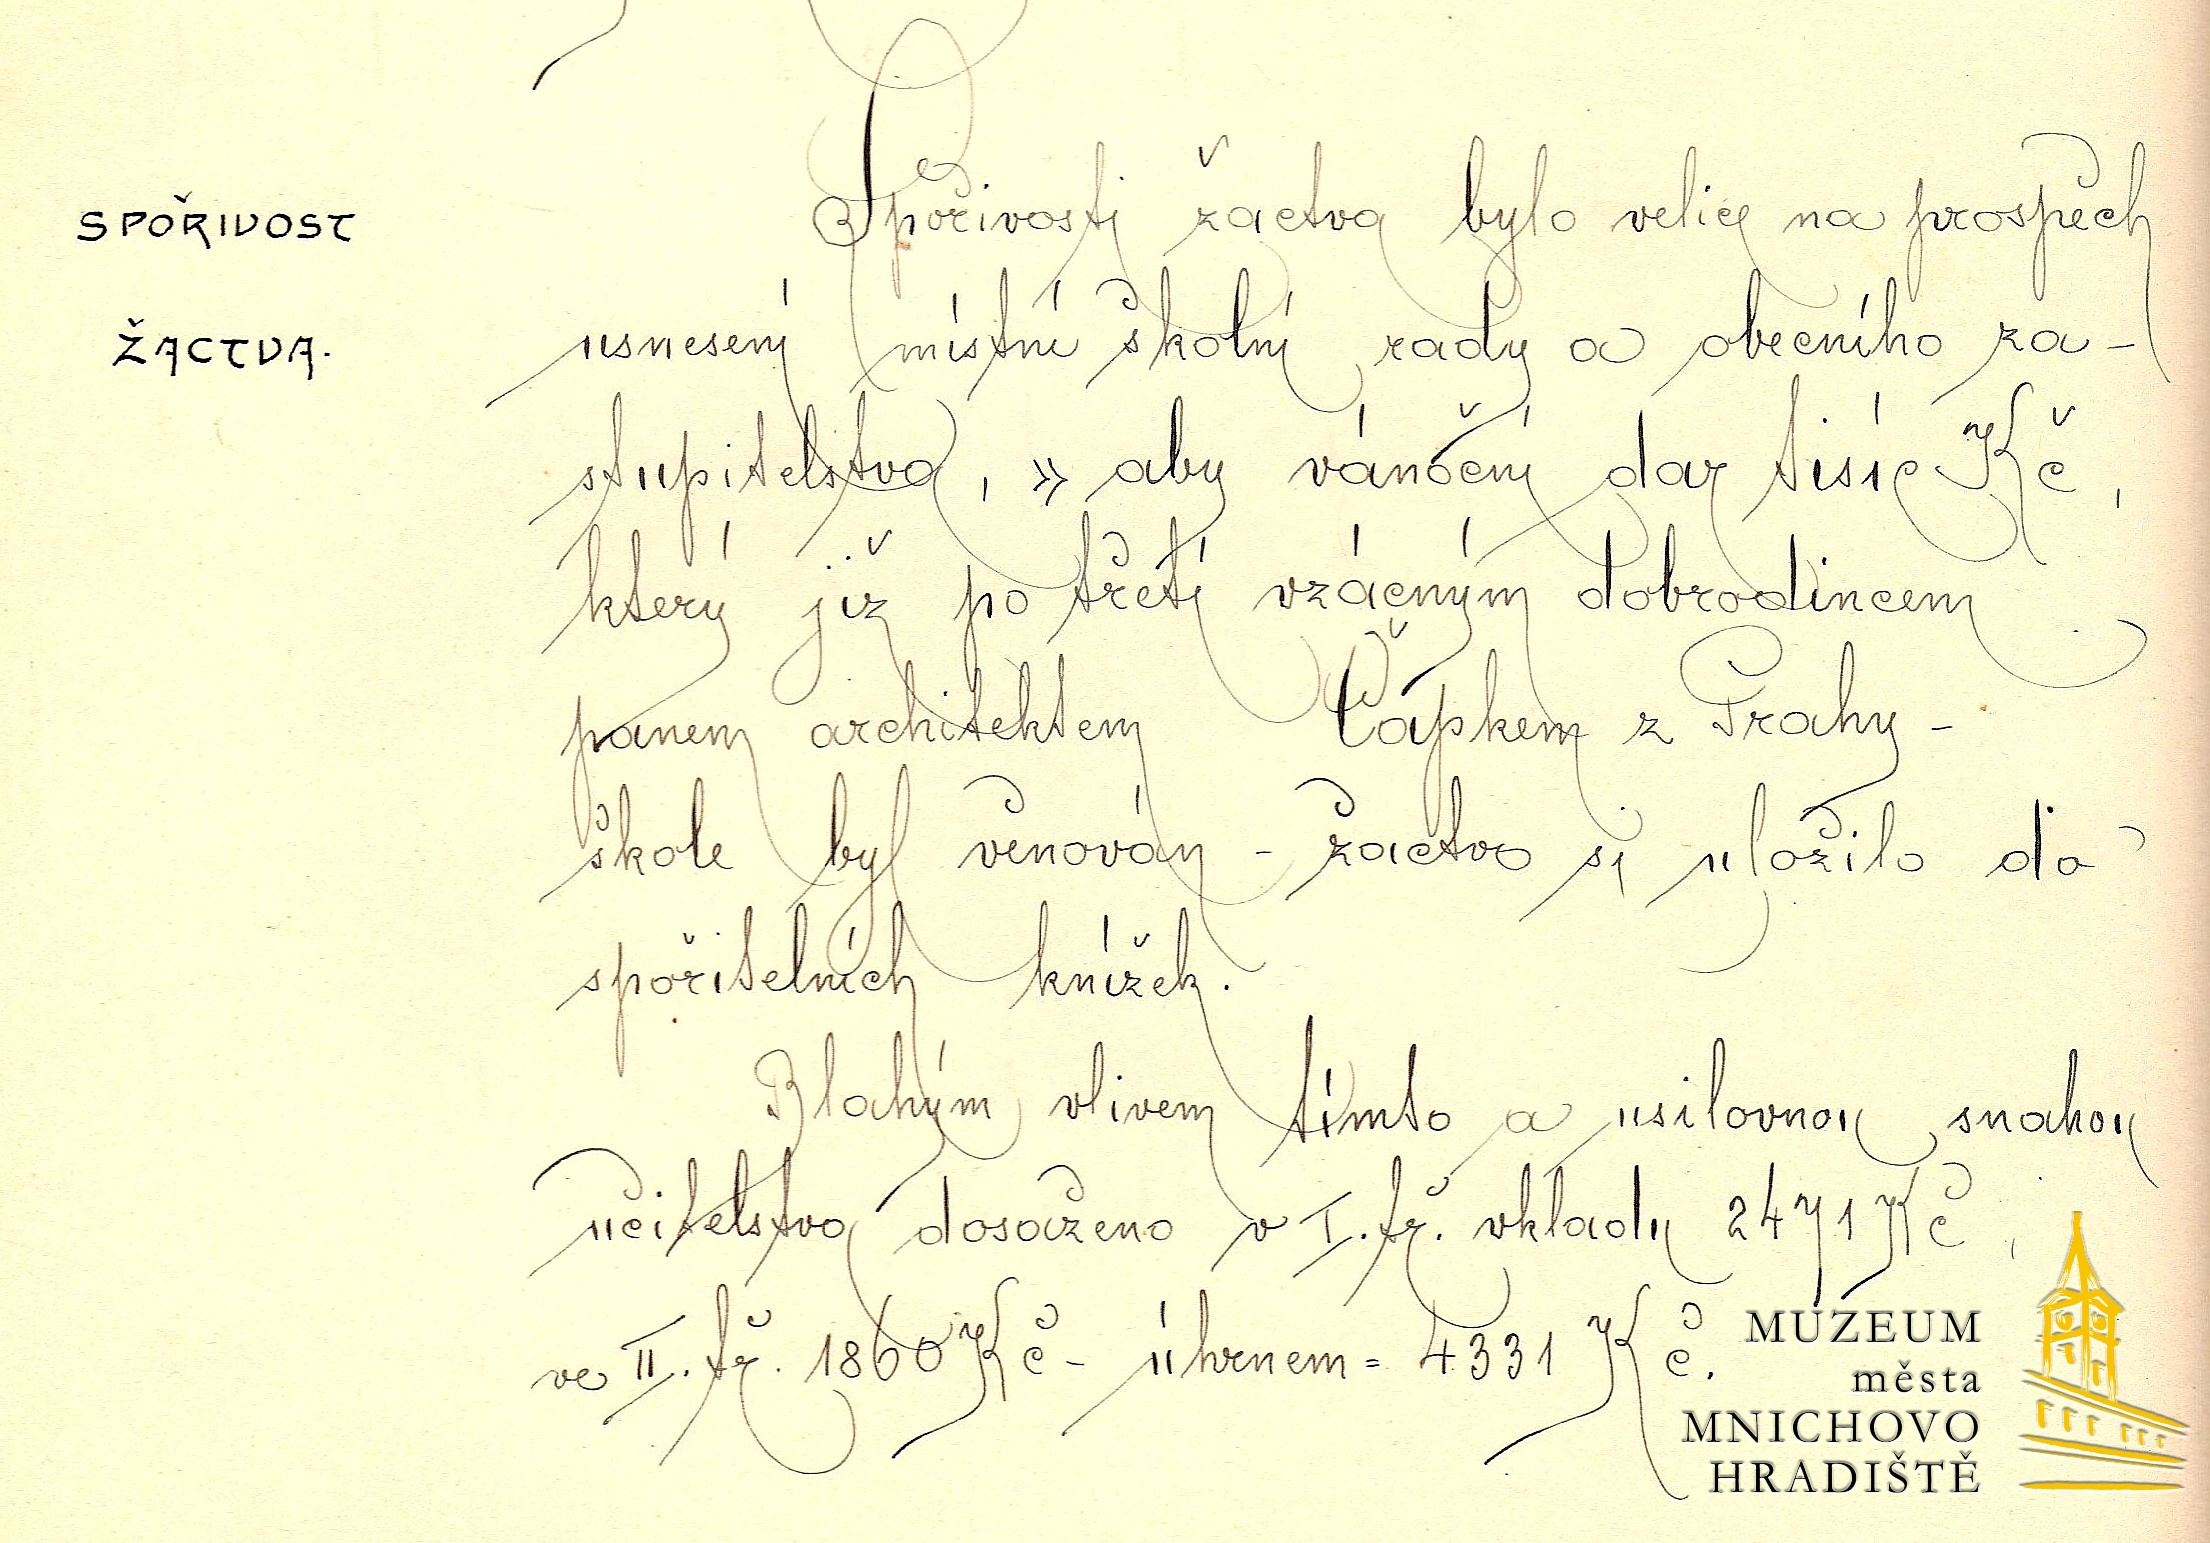 SPOŘIVOST
ŽACTVA.
Spořivosti žactva bylo velice na prospěch
usnesení místní školní rady a obecního za-
stupitelstva, » aby vánoční dar tisíc Kč,
který již po třetí vzácným dobrodincem
panem architektem Čapkem z Prahy -
škole byl věnován - žactvo si uložilo do
spořitelních knížek.
Blahým vlivem tímto a usilovnou snahou
učitelstva dosaženo v I. tř. vkladu 2471 Kč,
ve II. tř. 1860 Kč - úhrnem = 4331 Kč.
MUZEUM
města
MNICHOVO
HRADIŠTĚ